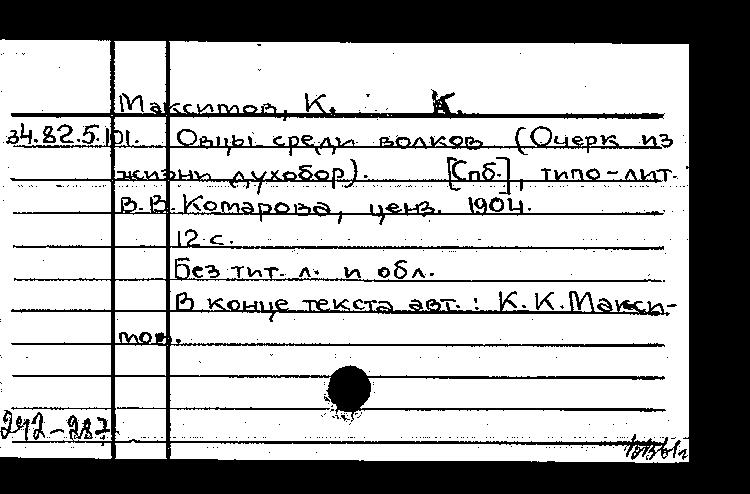 Максимов, К. К.
34.82.5.101. Овцы среди волков (Очерк из
жизни духобор). [Спб.], типо-лит.
В.В. Комарова, ценз. 1904.
12 с.
Без тит. л. и обл.
В конце текста авт.: К.К. Макси-
мов.
242-287